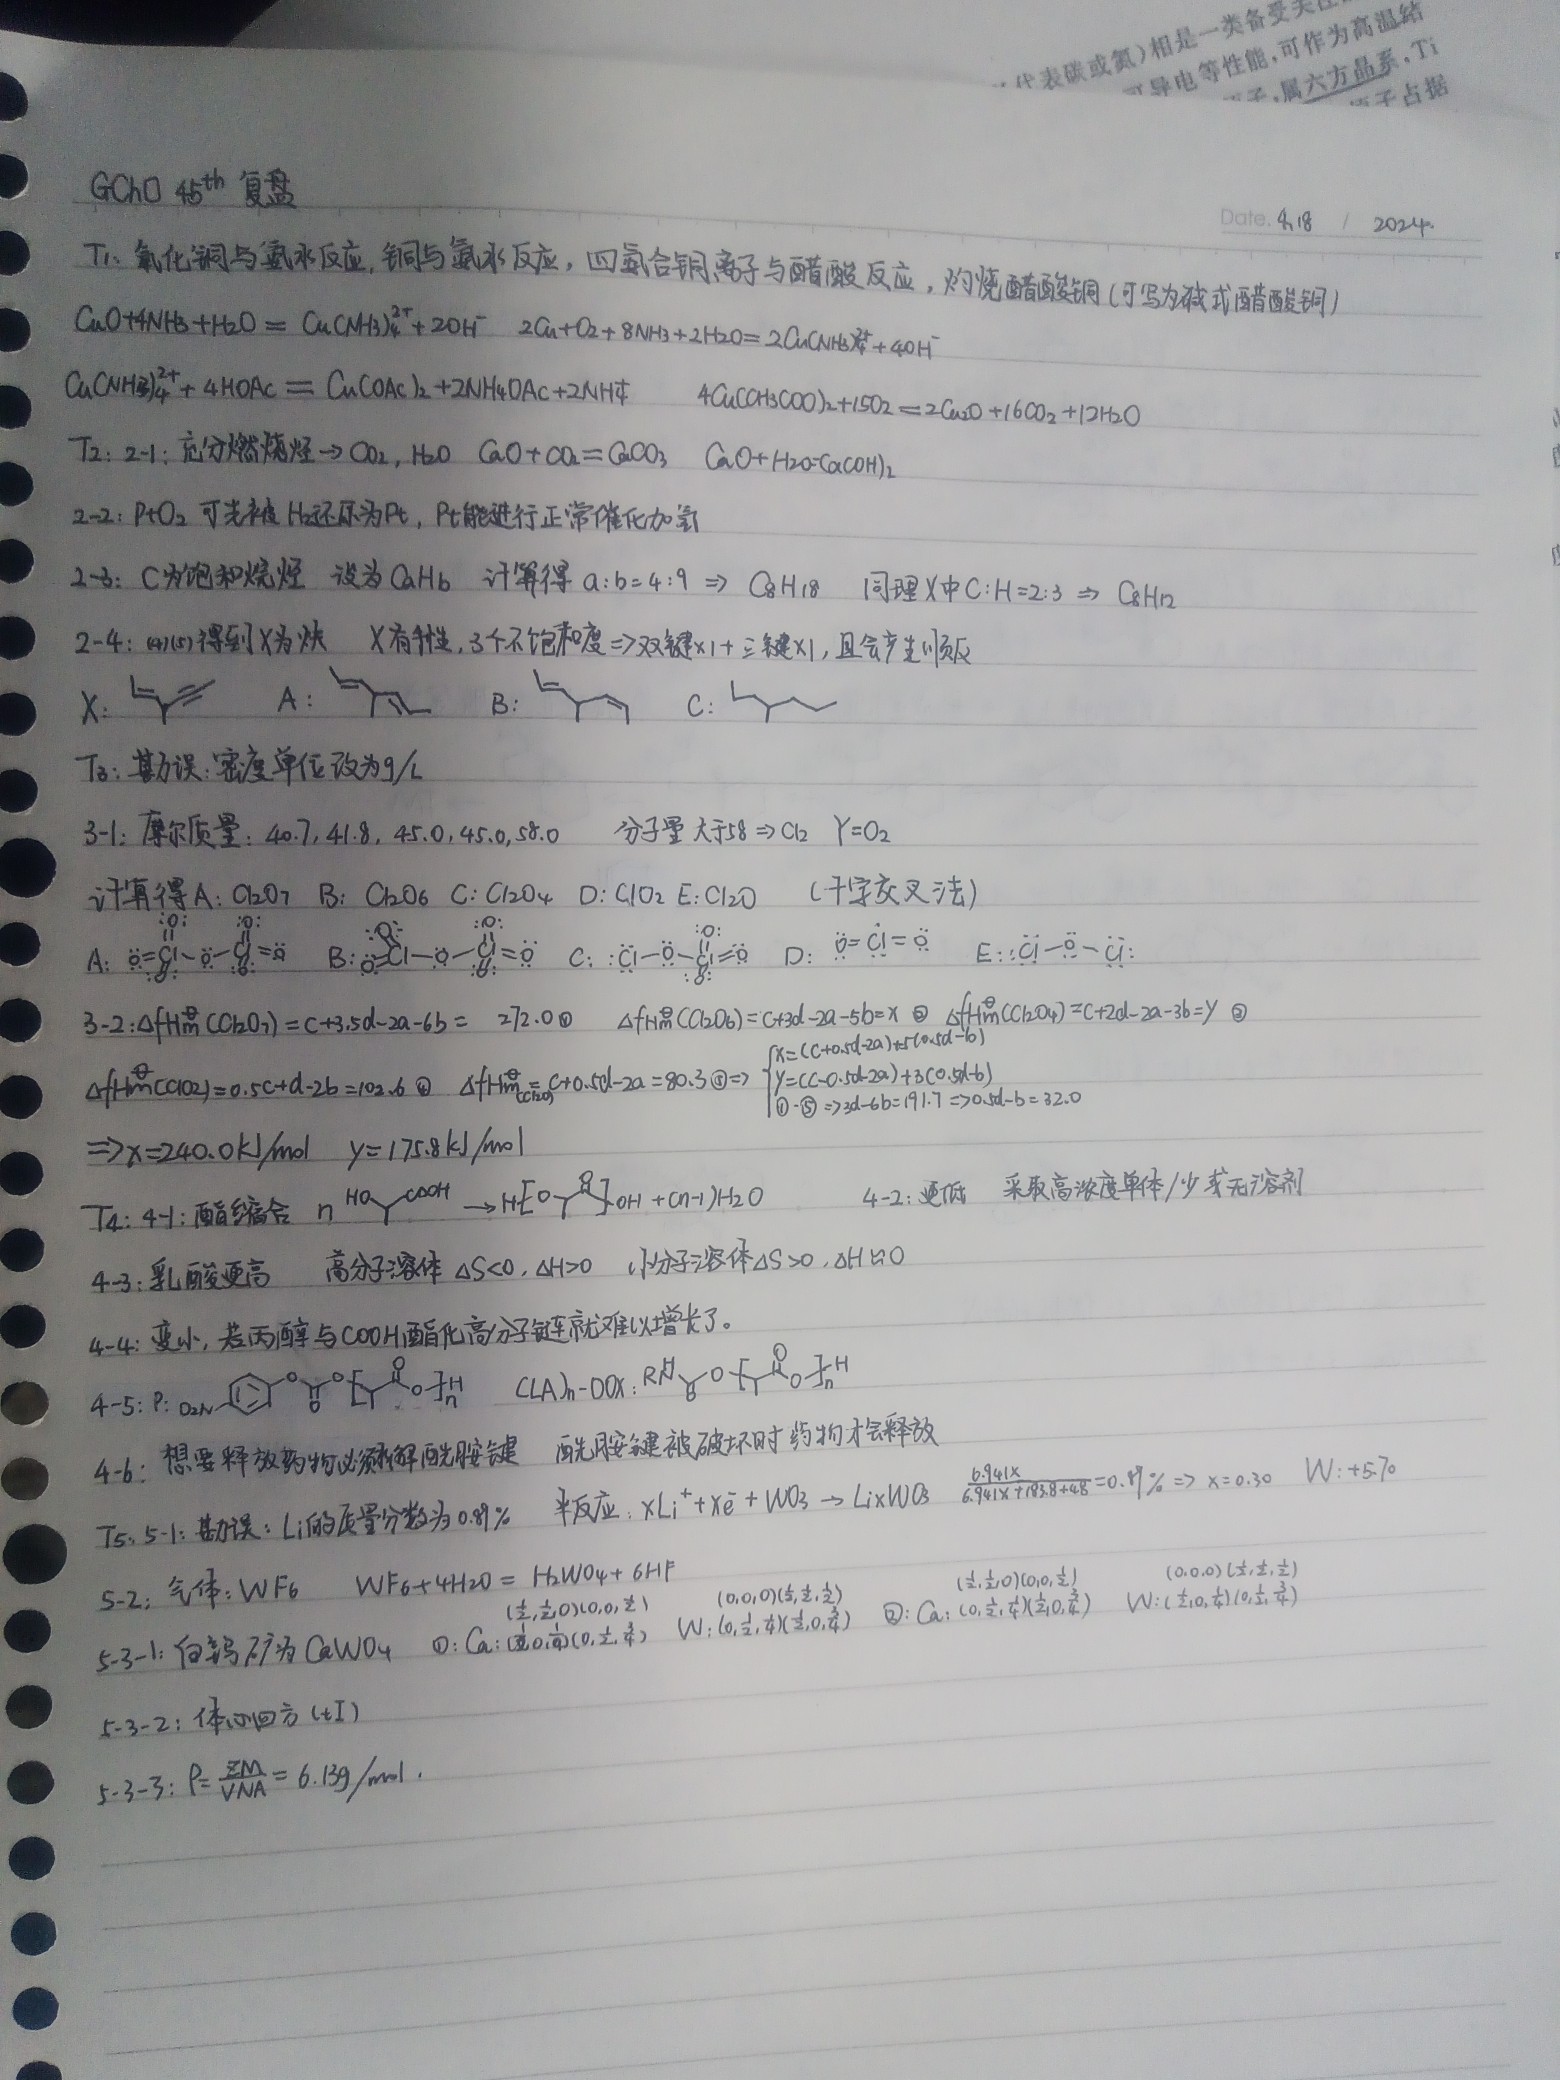 代表碳或氮)相是一类备受关注
可导电等性能,可作为高温结
子,属六方晶系,Ti
原子占据
GChO 45th 复盘
Date. 4.18 / 2024.
T1: 氧化铜与氨水反应, 铜与氨水反应, 四氨合铜离子与醋酸反应, 灼烧醋酸铜(可写为碱式醋酸铜)
CuO+4NH3+H2O = Cu(NH3)4²⁺+2OH⁻ 2Cu+O2+8NH3+2H2O=2Cu(NH3)4²⁺+4OH⁻
Cu(NH3)4²⁺+4HOAc = Cu(OAc)2+2NH4OAc+2NH4⁺ 4Cu(CH3COO)2+15O2=2Cu2O+16CO2+12H2O
T2: 2-1: 充分燃烧烃→CO2, H2O CaO+CO2=CaCO3 CaO+H2O=Ca(OH)2
2-2: PtO2 可先被H2还原为Pt, Pt能进行正常催化加氢
2-3: C为饱和烷烃 设为CaHb 计算得 a:b=4:9 ⇒ C8H18 同理X中C:H=2:3 ⇒ C8H12
2-4: (4)(5)得到X为炔 X有手性, 3个不饱和度⇒双键×1+三键×1, 且会产生顺反
X: A: B: C:
T3: 勘误: 密度单位改为g/L
3-1: 摩尔质量: 40.7, 41.8, 45.0, 45.0, 58.0 分子量大于58⇒Cl2 Y=O2
计算得A: Cl2O7 B: Cl2O6 C: Cl2O4 D: ClO2 E: Cl2O (十字交叉法)
A: O=Cl-O-Cl=O B: O=Cl-O-Cl=O C: Cl-O-Cl=O D: O=Cl=O E: Cl-O-Cl
3-2: ΔfHm⊖(Cl2O7)=c+3.5d-2a-6b= 272.0① ΔfHm⊖(Cl2O6)=c+3d-2a-5b=x② ΔfHm⊖(Cl2O4)=c+2d-2a-3b=y③
ΔfHm⊖(ClO2)=0.5c+d-2b=102.6④ ΔfHm⊖(Cl2O)=c+0.5d-2a=80.3⑤⇒ {x=(c+0.5d-2a)+5(0.5d-b)
y=(c-0.5d-2a)+3(0.5d-b)
①-⑤⇒3d-6b=191.7⇒0.5d-b=32.0
⇒x=240.0kJ/mol y=175.8kJ/mol
T4: 4-1: 酯缩合 n HO COOH →H[O O]OH+(n-1)H2O 4-2: 更低 采取高浓度单体/少或无溶剂
4-3: 乳酸更高 高分子溶体 ΔS<0, ΔH>0 小分子溶体ΔS>0, ΔH≈0
4-4: 变小, 若丙醇与COOH酯化高分子链就难以增长了。
4-5: P: O2N O O O [ O O ]nH (LA)n-DOX: RN H O O [ O O ]nH
4-6: 想要释放药物必须水解酰胺键 酰胺键被破坏时药物才会释放
T5: 5-1: 勘误: Li的质量分数为0.89% 半反应: xLi⁺+xe⁻+WO3→LixWO3 6.941x/6.941x+183.8+48=0.89%⇒x=0.30 W: +5.70
5-2: 气体: WF6 WF6+4H2O = H2WO4+6HF
5-3-1: 白钨矿为CaWO4 ①: Ca: (½,½,0)(0,0,½)(½,0,¼)(0,½,¾) W: (0,0,0)(½,½,½)(0,½,¼)(½,0,¾) ②: Ca: (½,½,0)(0,0,½)(0,½,¼)(½,0,¾) W: (0,0,0)(½,½,½)(½,0,¼)(0,½,¾)
5-3-2: 体心四方(tI)
5-3-3: ρ=ZM/VNA=6.13g/mol.